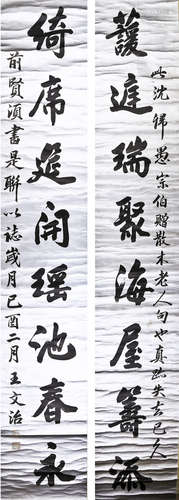 護進瑞聚海屋籌添
此沈歸愚宗伯贈散木老人句也真跡失去已久
綺席延開瑶池春永
前賢須書是聯以誌歲月己酉二月王文治